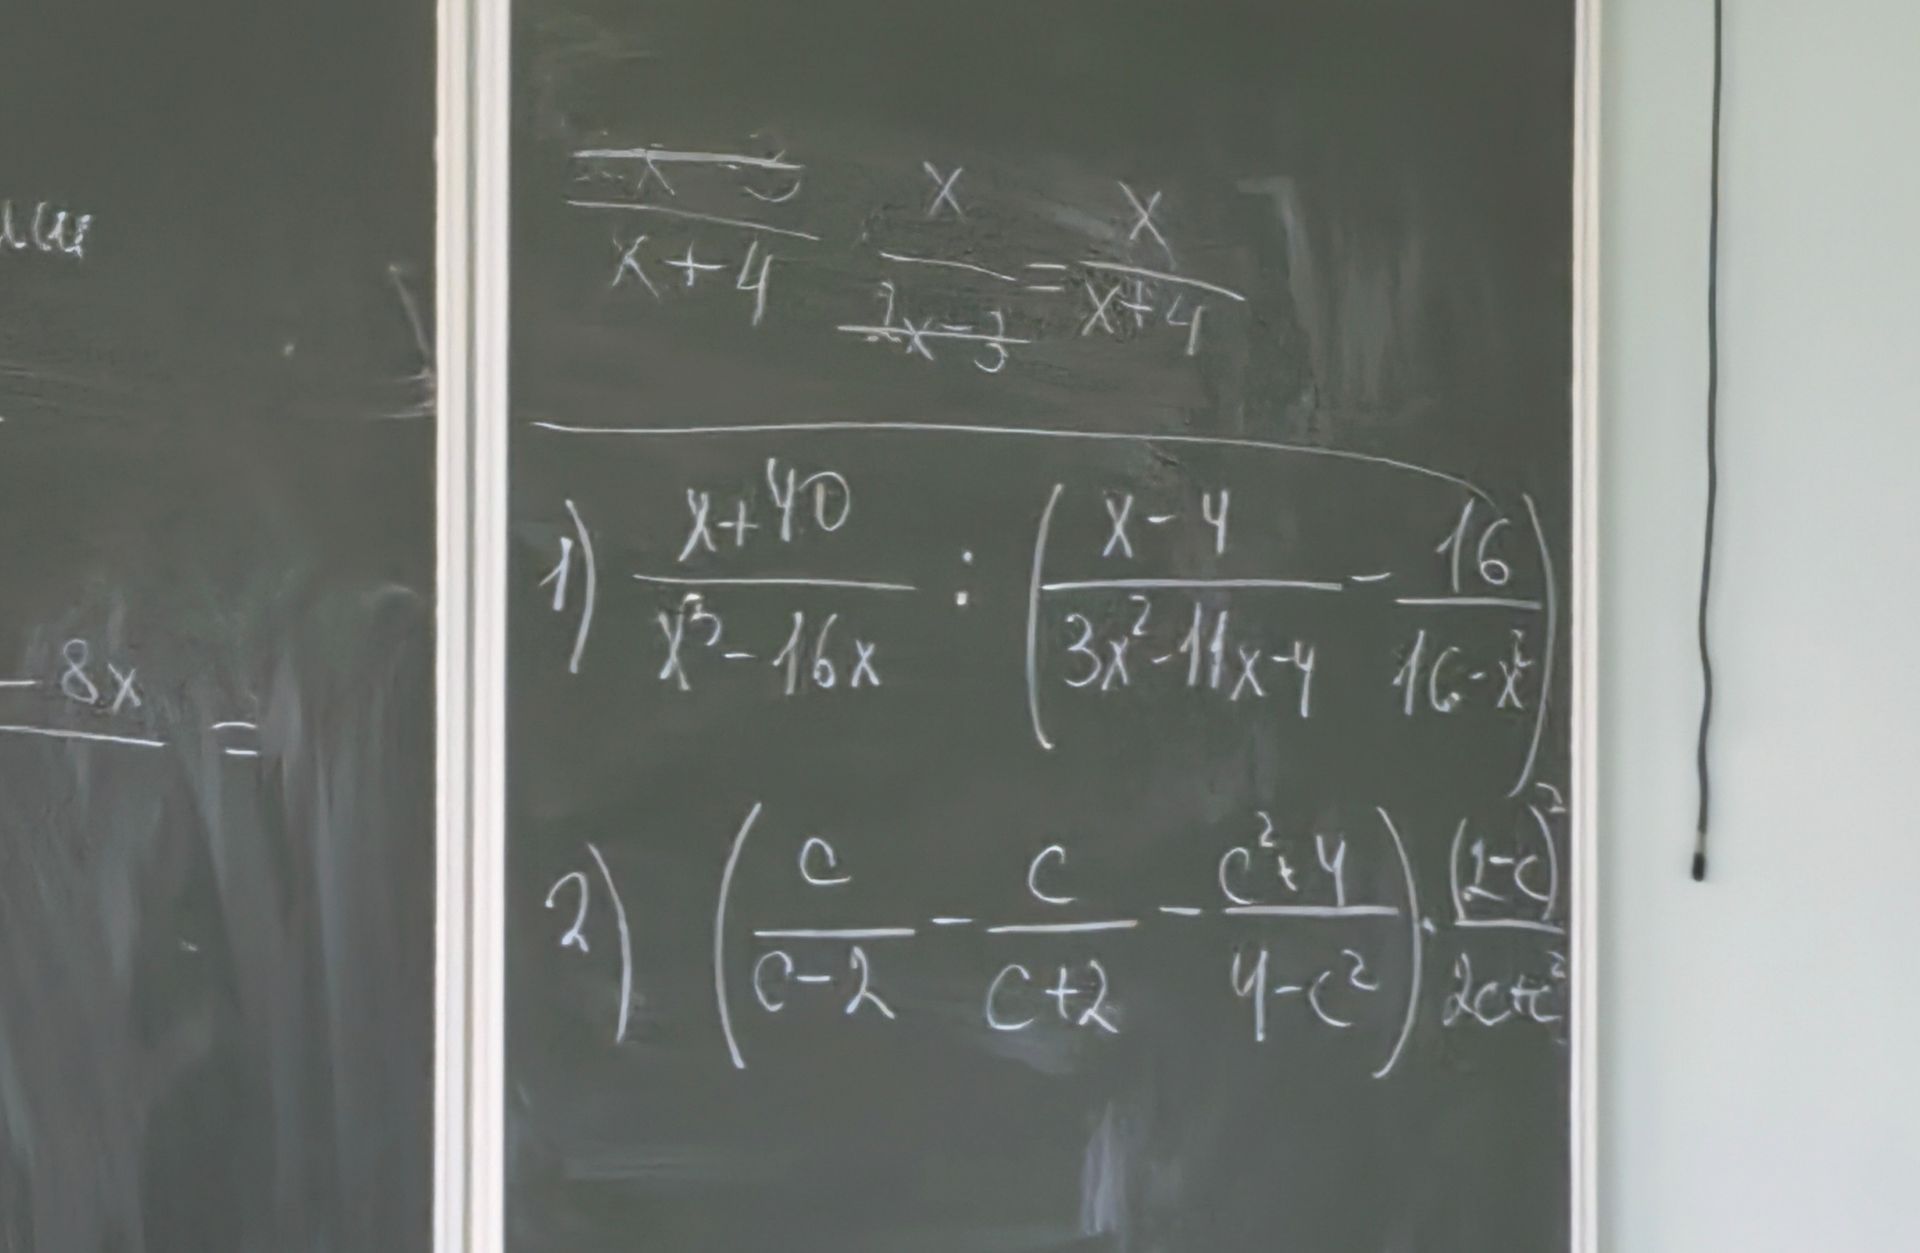 - 8x =
x + 4
x / = x / (x + 4)
1) (x + 40) / (x³ - 16x) : ((x - 4) / (3x² - 11x - 4) - 16 / (16 - x²))
2) (c / (c - 2) - c / (c + 2) - (c² + 4) / (4 - c²)) · (2 - c)² / (2c + c²)